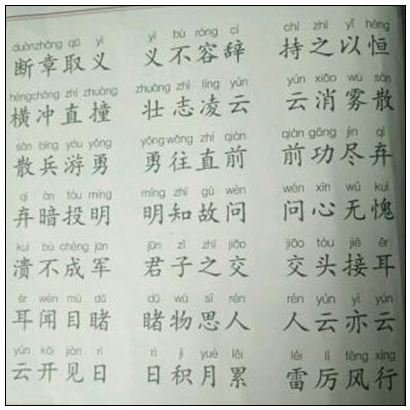 duànzhāng qǔ yì yì bù róng cí chí zhī yǐ héng
断章取义 义不容辞 持之以恒
héngchōng zhí zhuàng zhuàng zhì líng yún yún xiāo wù sàn
横冲直撞 壮志凌云 云消雾散
sǎn bīng yóu yǒng yǒng wǎng zhí qián qián gōng jìn qì
散兵游勇 勇往直前 前功尽弃
qì àn tóu míng míng zhī gù wèn wèn xīn wú kuì
弃暗投明 明知故问 问心无愧
kuì bù chéng jūn jūn zǐ zhī jiāo jiāo tóu jiē ěr
溃不成军 君子之交 交头接耳
ěr wén mù dǔ dǔ wù sī rén rén yún yì yún
耳闻目睹 睹物思人 人云亦云
yún kāi jiàn rì rì jī yuè lěi léi lì fēng xíng
云开见日 日积月累 雷厉风行